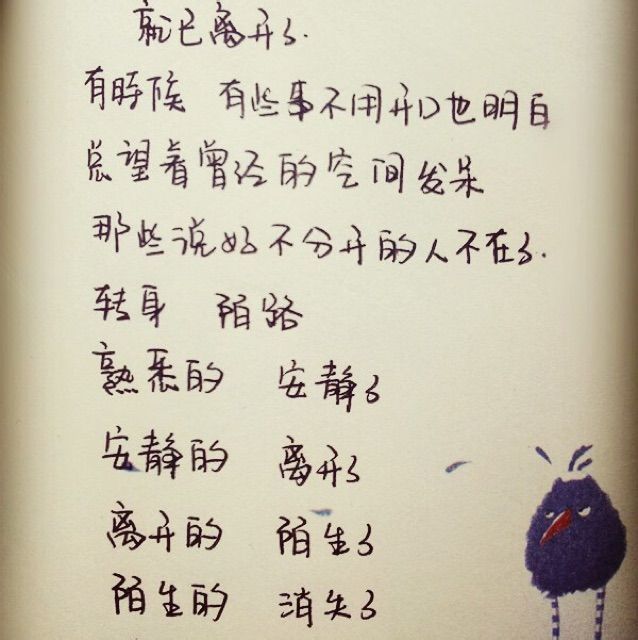 就已离开了.
有時候 有些事不用开口也明白
总望着曾经的空间发呆
那些说好不分开的人不在了.
转身 陌路
熟悉的 安静了
安静的 离开了
离开的 陌生了
陌生的 消失了